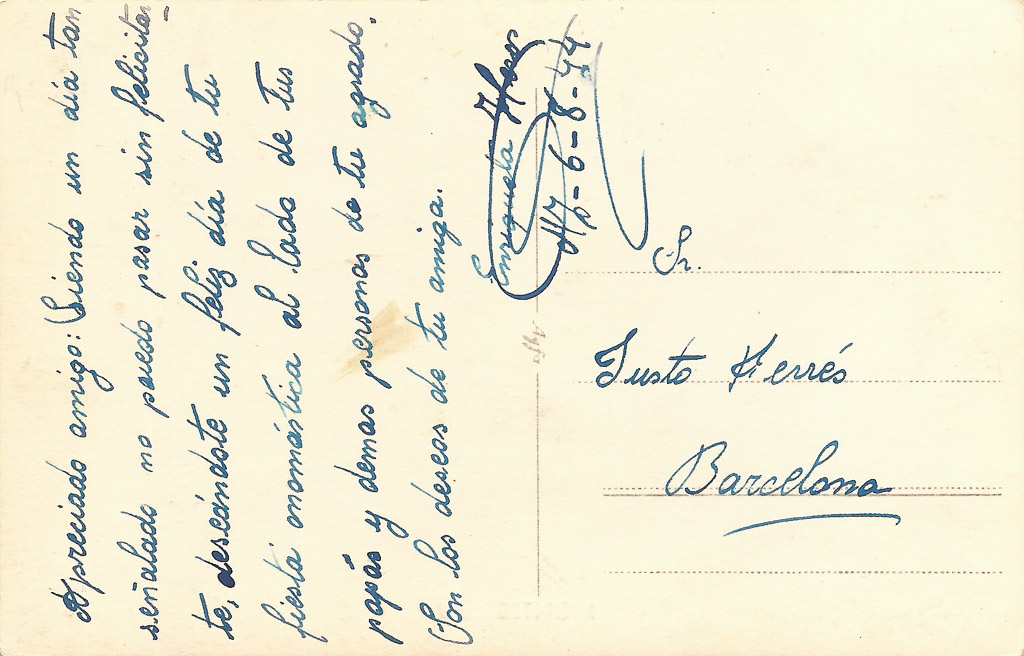 Apreciado amigo: Siendo un día tan
señalado no puedo pasar sin felicitar-
te, deseándote un feliz día de tu
fiesta onomástica al lado de tus
papás y demas personas de tu agrado.
Son los deseos de tu amiga.
Enriqueta
6-8-44
Sr.
Justo Ferrés
Barcelona